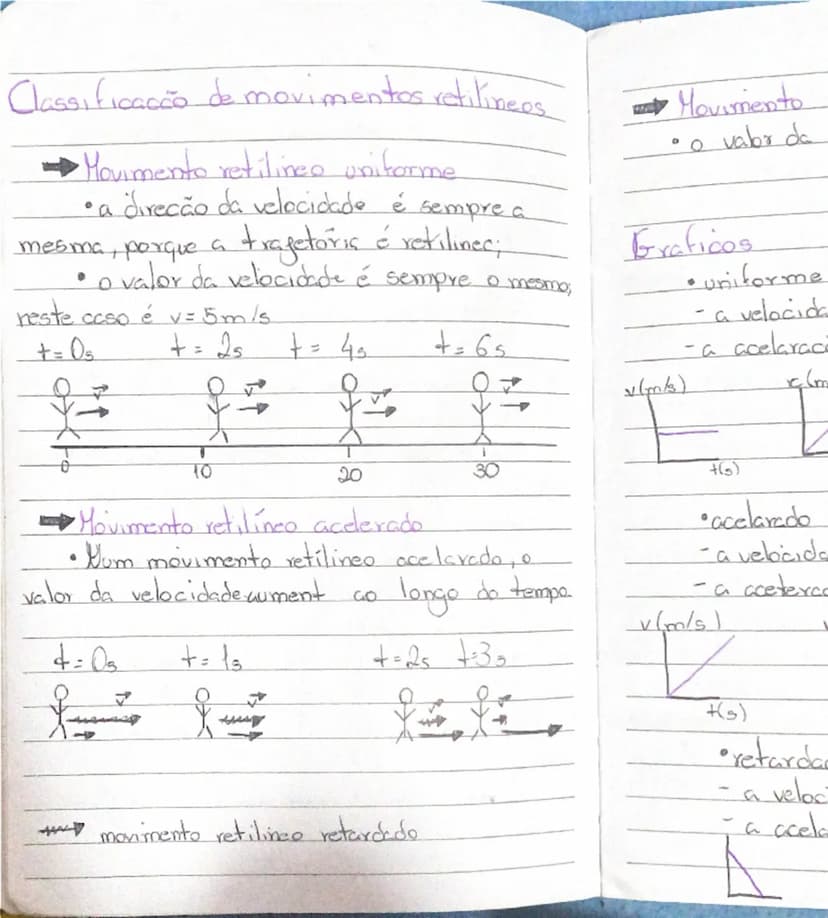 Classificação de movimentos retilíneos
Movimento retilíneo uniforme
• a direcão da velocidade é sempre a
mesma, porque a trajetória é retilinea;
• o valor da velocidade é sempre o mesmo,
neste caso é v = 5 m/s
t = 0s t = 2s t = 4s t = 6s
v v v v
0 10 20 30
Movimento retilíneo acelerado
• Num movimento retílineo acelarado, o
valor da velocidade aument ao longo do tempo.
t = 0s t = 1s t = 2s t = 3s
v v v v
movimento retilineo retardado
Movimento
• o valor da
Graficos
• uniforme
- a velocida
- a acelaraci
v(m/s)
t(s)
• acelarado
- a velocida
v(m/s)
t(s)
• retarda
- a veloc
- a acela